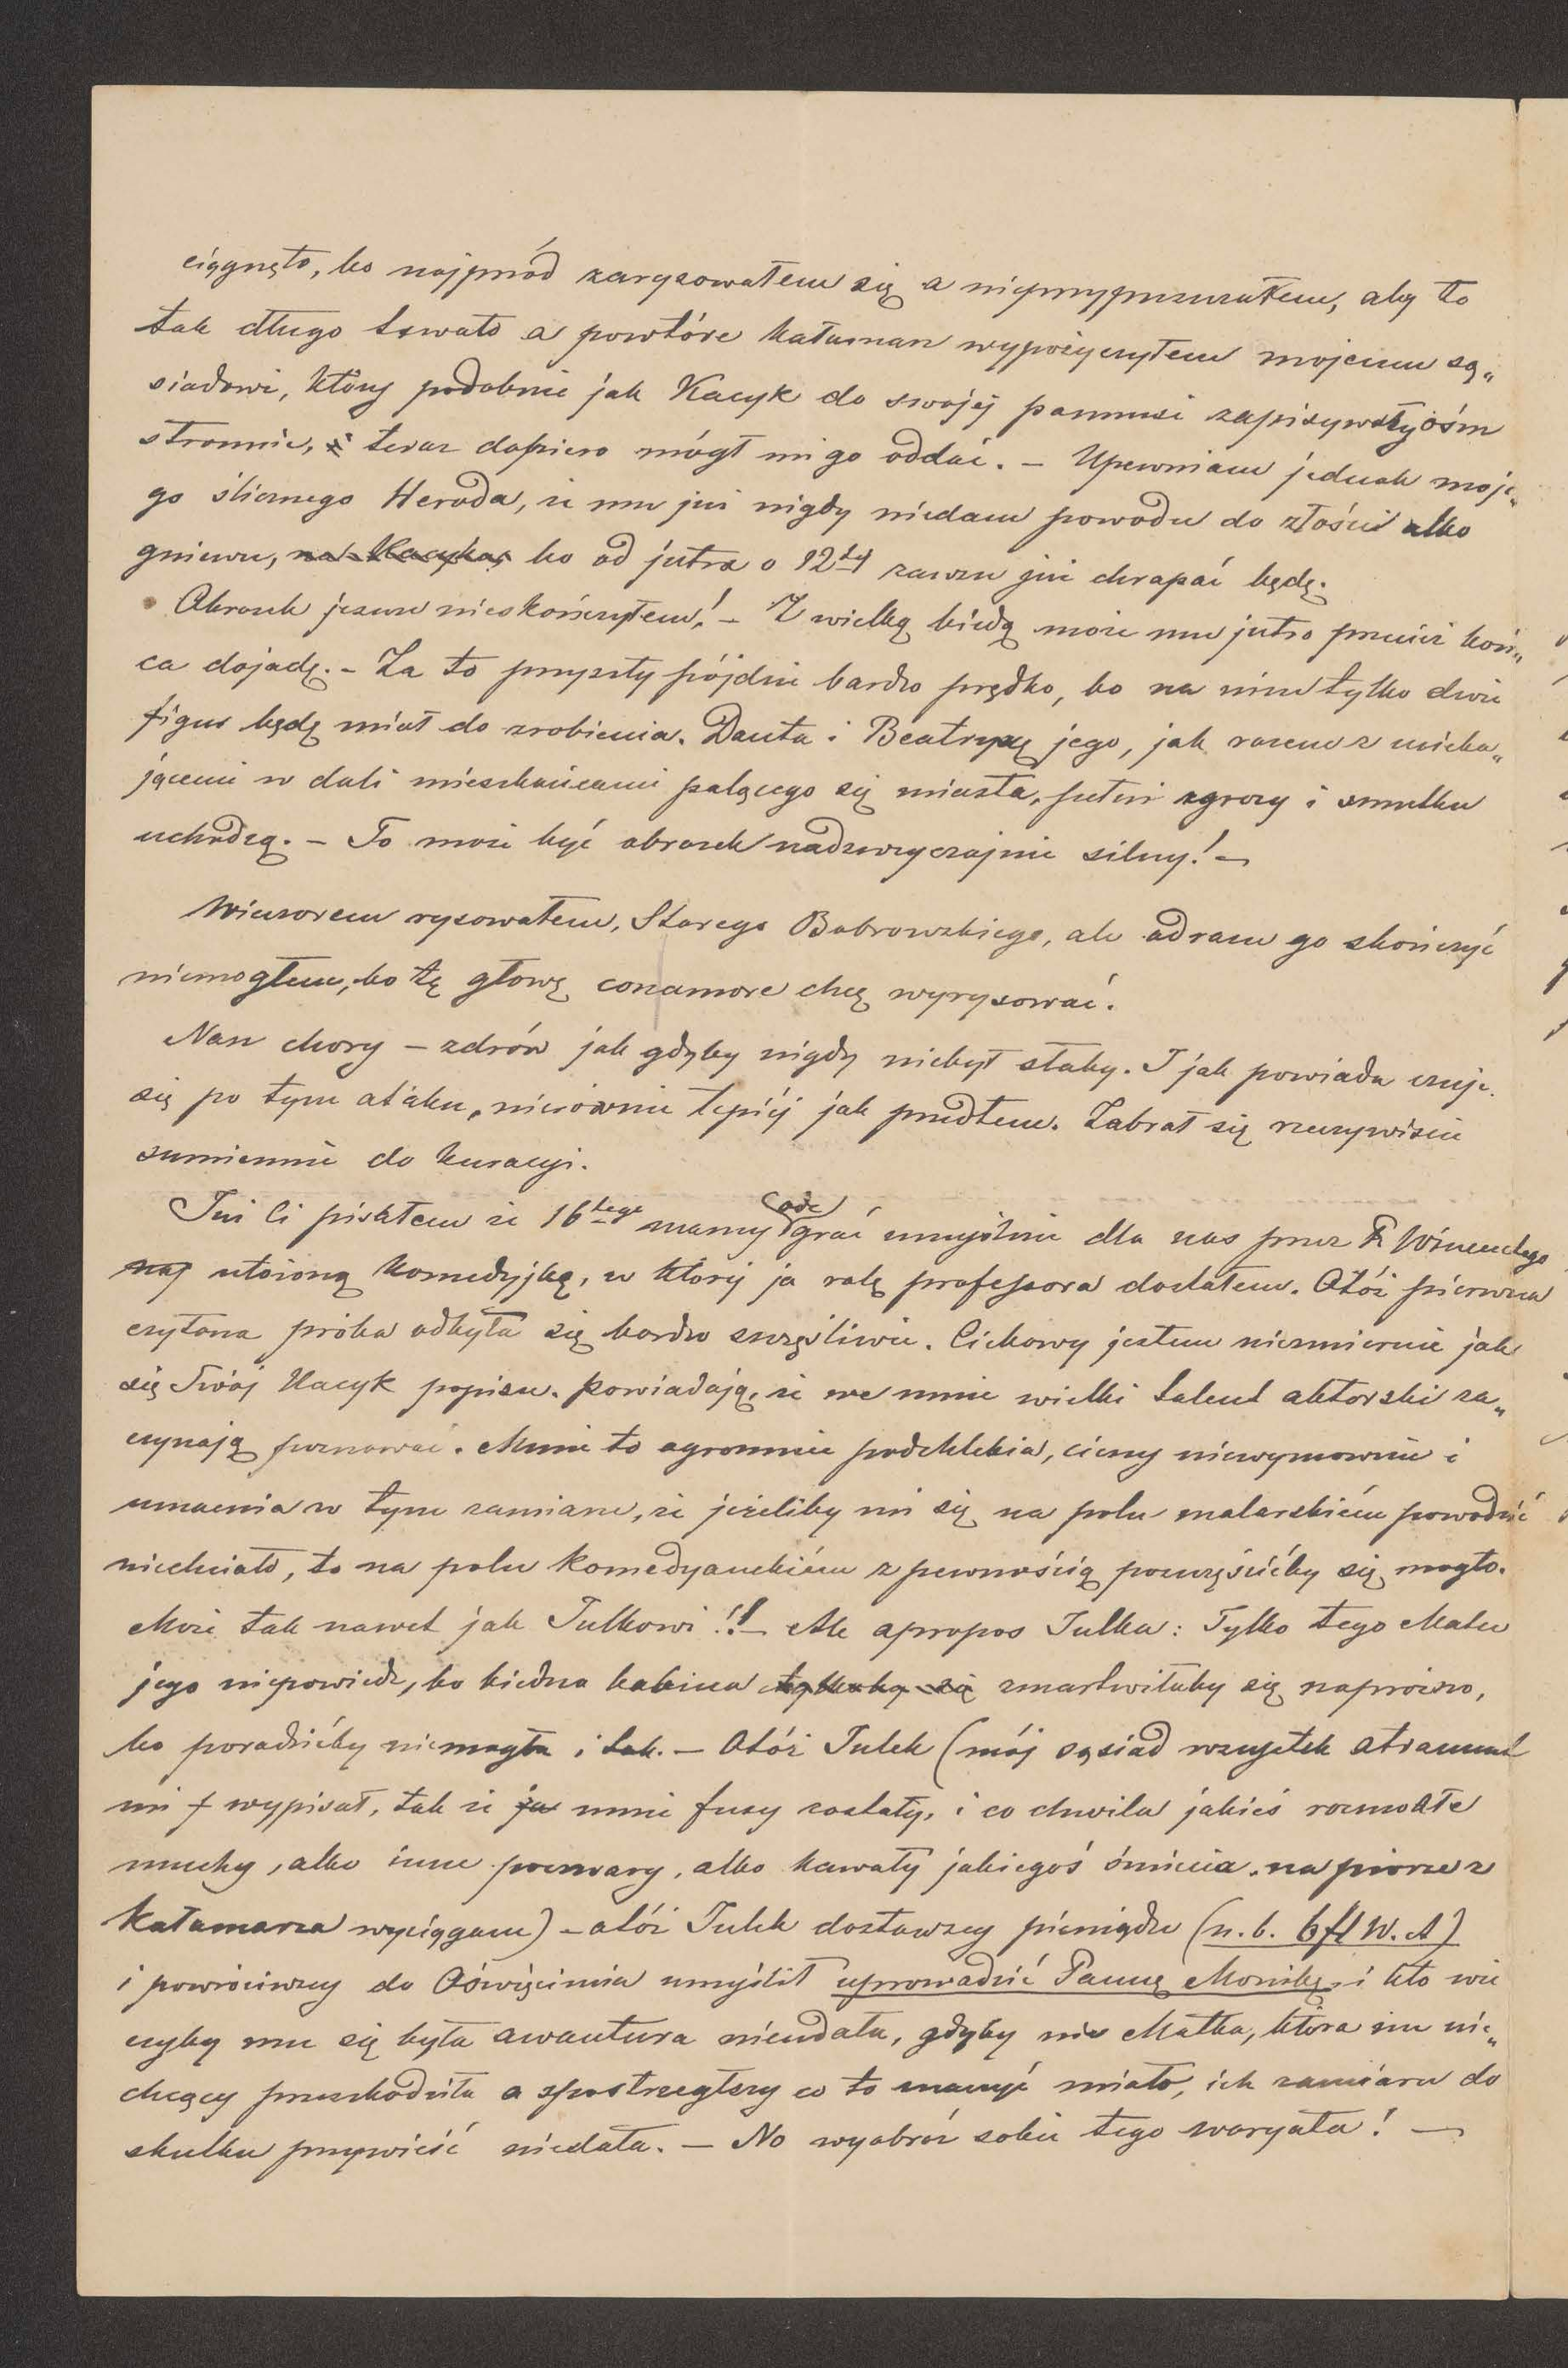 ciągnęło, bo najpród zarysowałem się a nieprzypuszczałem, aby to
tak długo trwało a powtóre kałamarz wypożyczyłem mojemu są„
siadowi, który podobnie jak Kacyk do swojéj pannusi zapisywał ośm
stronnic, i teraz dopiero mógł mi go oddać. – Upewniam jednak moje„
go ślicznego Heroda, że mu już nigdy niedam powodu do złości albo
gniewu, na Kacyka, bo od jutra o 12téj zawsze już chrapać będę.
Obrazek jeszcze nieskończyłem! – Z wielką biédą może mu jutro przecież koń„
ca dojadę. – Za to przyszły pójdzie bardzo prędko, bo na nim tylko dwie
figur będę miał do zrobienia. Danta i Beatryxę jego, jak razem z ucieka„
jącemi w dali mieszkańcami palącego się miasta, pełni zgrozy i smutku
uchodzą. – To może być obrazek nadzwyczajnie silny! –
Wieczorem rysowałem, Starego Bobrowskiego, ale odrazu go skończyć
niemogłem, bo tę głowę conamore chcę wyrysować.
Nasz chory – zdrów jak gdyby nigdy niebył słaby. I jak powiada czuje
się po tym ataku, nierównie lepiéj jak przedtem. Zabrał się rzeczywiście
sumiennie do kuracyi.
Już Ci pisałem że 16tego mamy (ode) grać umyślnie dla nas przez P. Wincentego
naj ułożoną komedyjkę, w któréj ja rolę professora dostałem. Otóż pierwsza
czytana próba odbyła się bardzo szczęśliwie. Ciekawy jestem niezmiernie jak
się Twój Kacyk popisze. Powiadają, że we mnie wielki talent aktorski za„
czynają poznawać. Mnie to ogromnie podchlebia, cieszy niewymownie i
umacnia w tym zamiarze, że jeżeliby mi się na polu malarskiém powodzić
niechciało, to na polu komedyanckiém z pewnością poszczęścićby się mogło.
Może tak nawet jak Julkowi!! – Ale apropos Julka: Tylko tego Matce
jego niepowiedz, bo biédna kobiéca zmartwiłaby się naprózno,
bo poradzićby niemogła i tak. – Otóż Julek (mój sąsiad wszystek atrament
mi wypisał, tak że ja mnie fusy zostały, i co chwila jakieś rozmokłe
muchy, albo inne poczwary, albo kawały jakiegoś śmiecia, na piórze z
kałamarza wyciągam) – otóż Julek dostawszy pieniądze (n.b. 6 fl W. A)
i powróciwszy do Oświęcimia umyślił uprowadzić Pannę Monikę, i kto wie
czyby mu się była awantura nieudała, gdyby nie Matka, która im nie„
chcący przeszkodziła a spostrzegłszy co to znaczyć miało, ich zamiaru do
skutku przywieść niedała. – No wyobraź sobie tego waryata! –